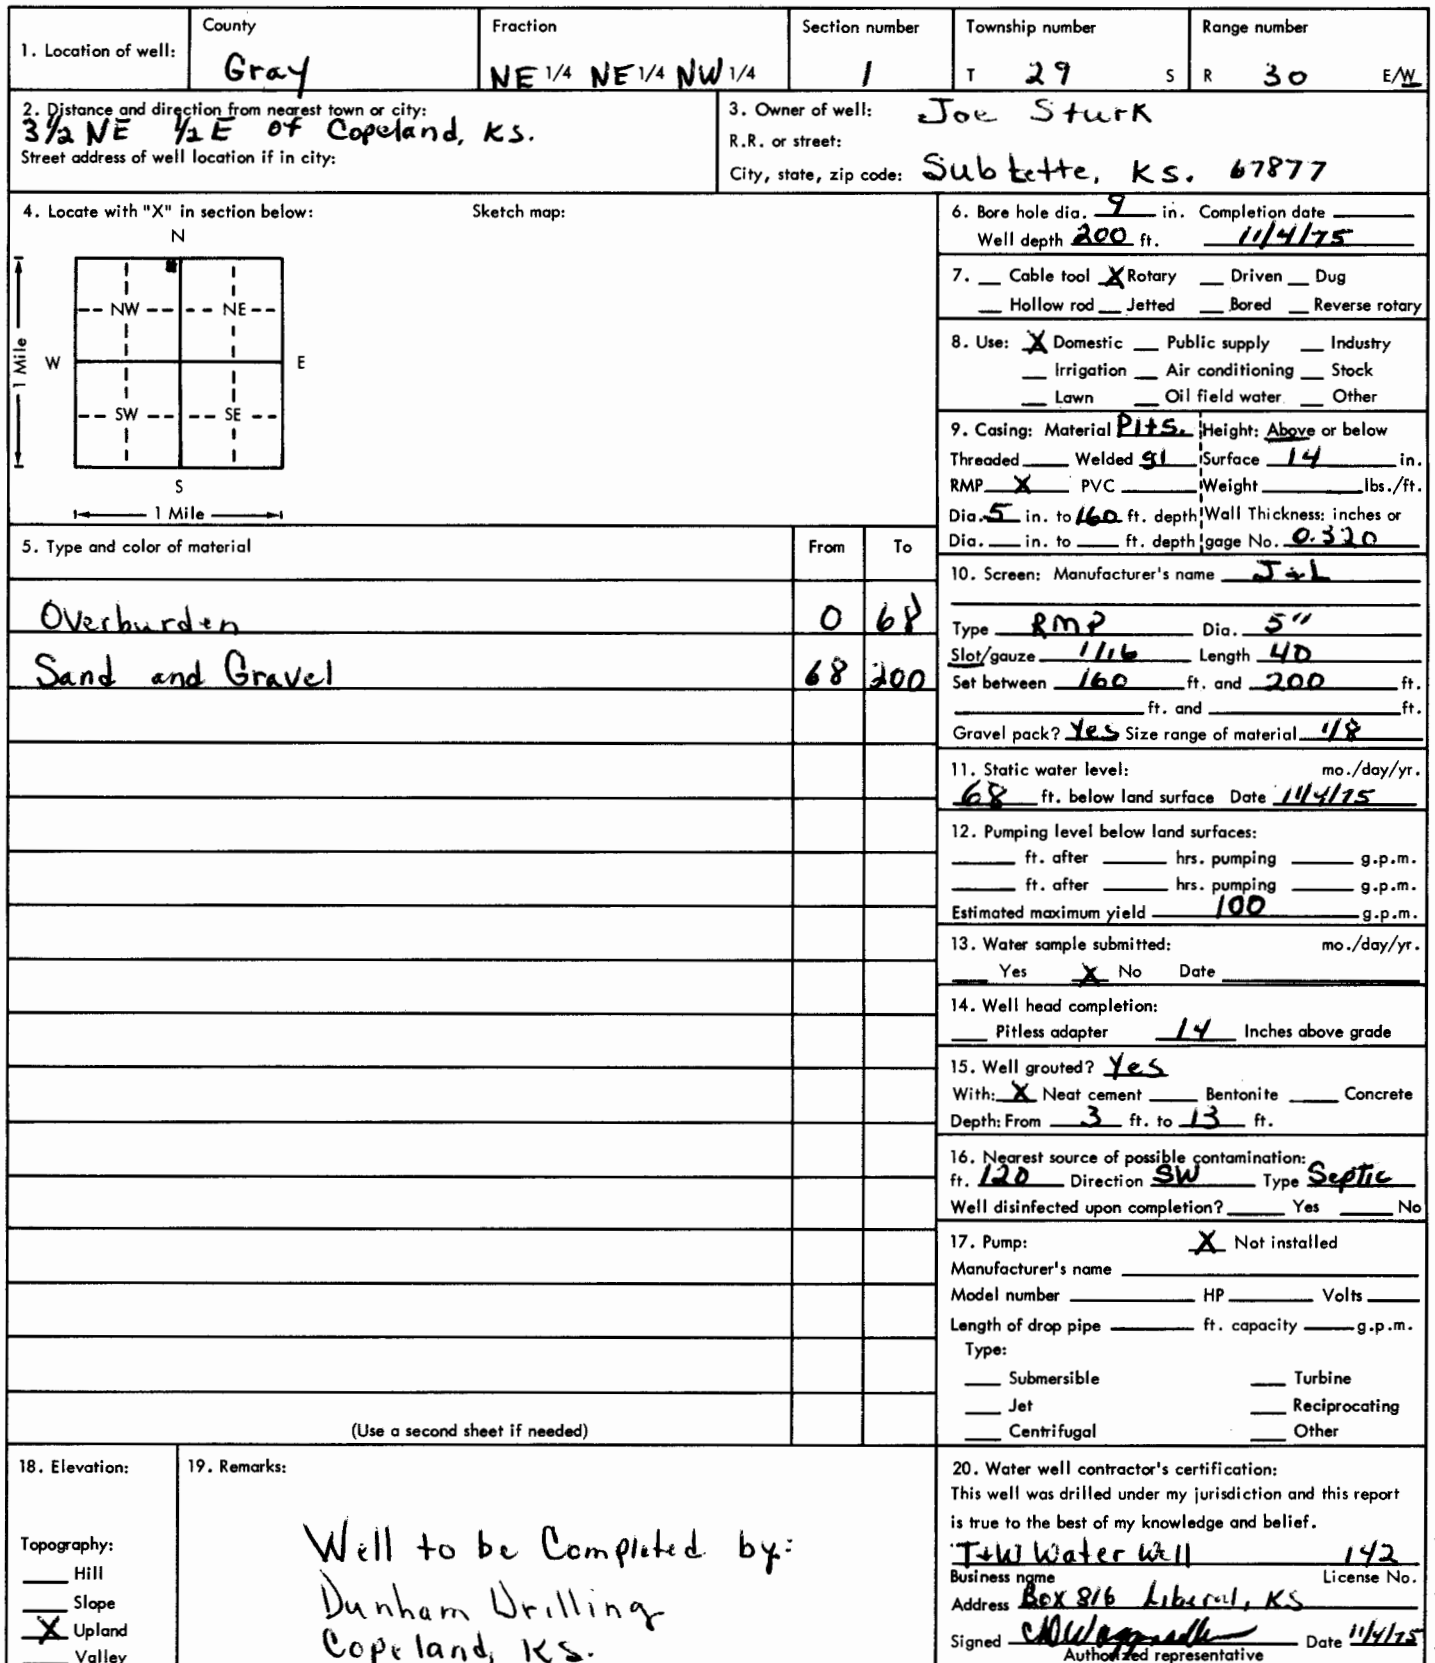 1. Location of well: County Gray Fraction NE 1/4 NE 1/4 NW 1/4 Section number 1 Township number T 29 S Range number R 30 E/W
2. Distance and direction from nearest town or city:
3 1/2 NE 1/2 E of Copeland, KS.
Street address of well location if in city:
3. Owner of well: Joe Sturk
R.R. or street:
City, state, zip code: Subtette, KS. 67877
4. Locate with "X" in section below: Sketch map:
N
NW NE
W E
1 Mile
SW SE
S
1 Mile
5. Type and color of material From To
Overburden 0 68
Sand and Gravel 68 200
(Use a second sheet if needed)
6. Bore hole dia. 9 in. Completion date
Well depth 200 ft. 11/4/75
7. Cable tool X Rotary Driven Dug
Hollow rod Jetted Bored Reverse rotary
8. Use: X Domestic Public supply Industry
Irrigation Air conditioning Stock
Lawn Oil field water Other
9. Casing: Material Plts. Height: Above or below
Threaded Welded gl Surface 14 in.
RMP X PVC Weight lbs./ft.
Dia. 5 in. to 160 ft. depth Wall Thickness: inches or
Dia. in. to ft. depth gage No. 0.320
10. Screen: Manufacturer's name J & L
Type RMP Dia. 5"
Slot/gauze 1/16 Length 40
Set between 160 ft. and 200 ft.
ft. and ft.
Gravel pack? Yes Size range of material 1/8
11. Static water level: mo./day/yr.
68 ft. below land surface Date 11/4/75
12. Pumping level below land surfaces:
ft. after hrs. pumping g.p.m.
ft. after hrs. pumping g.p.m.
Estimated maximum yield 100 g.p.m.
13. Water sample submitted: mo./day/yr.
Yes X No Date
14. Well head completion:
Pitless adapter 14 Inches above grade
15. Well grouted? Yes
With: X Neat cement Bentonite Concrete
Depth: From 3 ft. to 13 ft.
16. Nearest source of possible contamination:
ft. 120 Direction SW Type Septic
Well disinfected upon completion? Yes No
17. Pump: X Not installed
Manufacturer's name
Model number HP Volts
Length of drop pipe ft. capacity g.p.m.
Type:
Submersible Turbine
Jet Reciprocating
Centrifugal Other
18. Elevation:
Topography:
Hill
Slope
X Upland
Valley
19. Remarks:
Well to be Completed by:
Dunham Drilling
Copeland, KS.
20. Water well contractor's certification:
This well was drilled under my jurisdiction and this report
is true to the best of my knowledge and belief.
T+W Water Well 142
Business name License No.
Address Box 816 Liberal, KS
Signed Date 11/4/75
Authorized representative